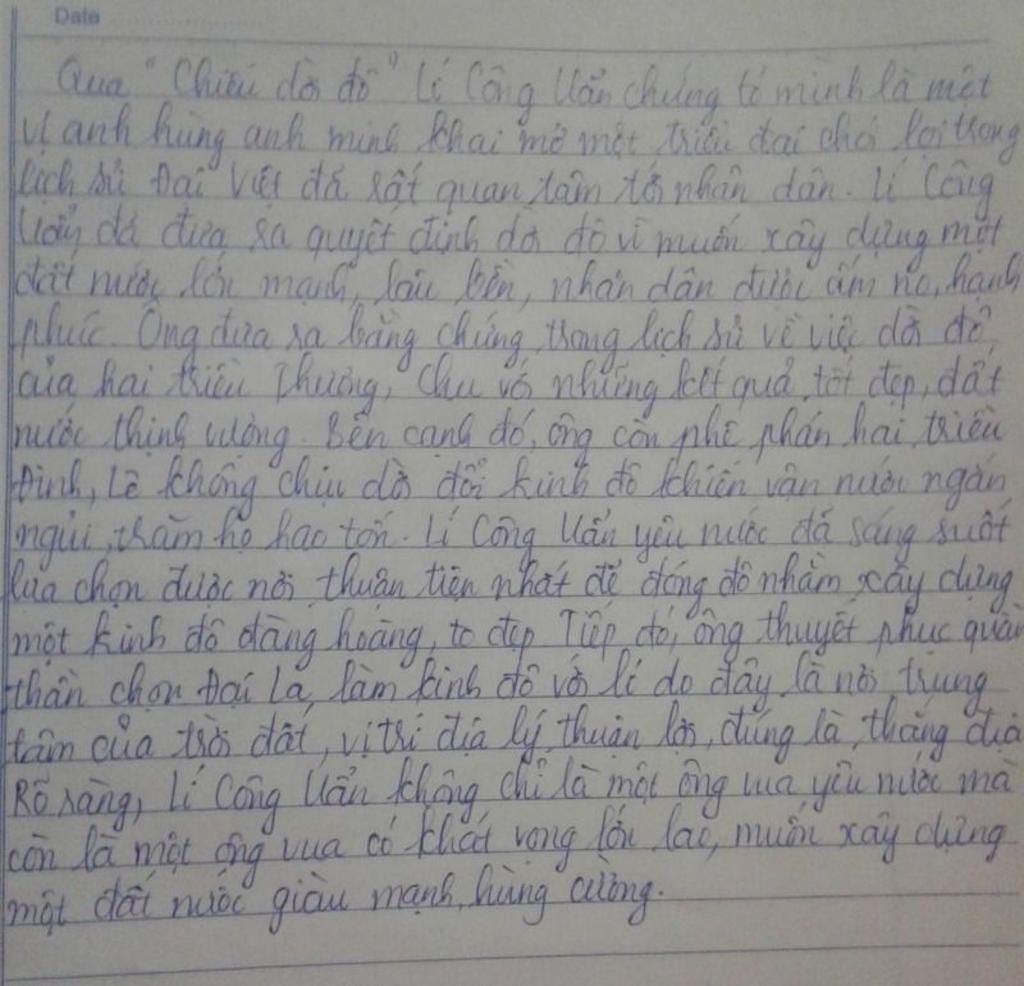 Date
Qua "Chiếu dời đô" Lí Công Uẩn chứng tỏ mình là một
vị anh hùng anh minh khai mở một triều đại chói lọi trong
lịch sử Đại Việt đã rất quan tâm tới nhân dân. Lí Công
Uẩn đã đưa ra quyết định dời đô vì muốn xây dựng một
đất nước lớn mạnh, lâu bền, nhân dân được ấm no, hạnh
phúc. Ông đưa ra bằng chứng trong lịch sử về việc dời đô
của hai triều Thương, Chu với những kết quả tốt đẹp, đất
nước thịnh vượng. Bên cạnh đó, ông còn phê phán hai triều
Đinh, Lê không chịu dời đổi kinh đô khiến vận nước ngắn
ngủi, trăm họ hao tốn. Lí Công Uẩn yêu nước đã sáng suốt
lựa chọn được nơi thuận tiện nhất để đóng đô nhằm xây dựng
một kinh đô đàng hoàng, to đẹp Tiếp đó, ông thuyết phục quần
thần chọn Đại La, làm kinh đô với lí do đây là nơi trung
tâm của trời đất, vị trí địa lý thuận lợi, đúng là thắng địa
Rõ ràng, Lí Công Uẩn không chỉ là một ông vua yêu nước mà
còn là một ông vua có khát vọng lớn lao, muốn xây dựng
một đất nước giàu mạnh, hùng cường.